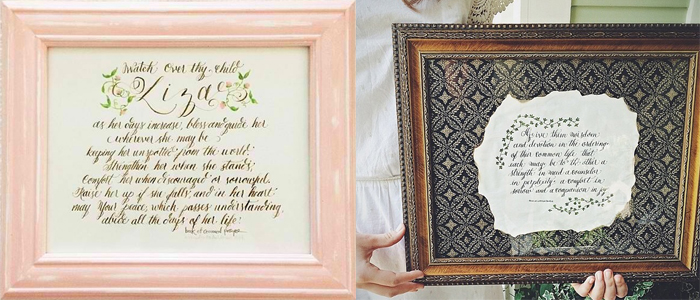 Watch over thy child
Liza
as her days increase, bless and guide her
wherever she may be,
keeping her unspotted from the world.
Strengthen her when she stands;
Comfort her when discouraged or sorrowful.
Raise her up if she falls; and in her heart
may Your peace, which passes understanding,
abide all the days of her life.
book of common prayer
Give them wisdom
and devotion in the ordering
of this common life, that
each may be to the other a
strength in need, a counselor
in perplexity, a comfort in
sorrow and a companion in joy